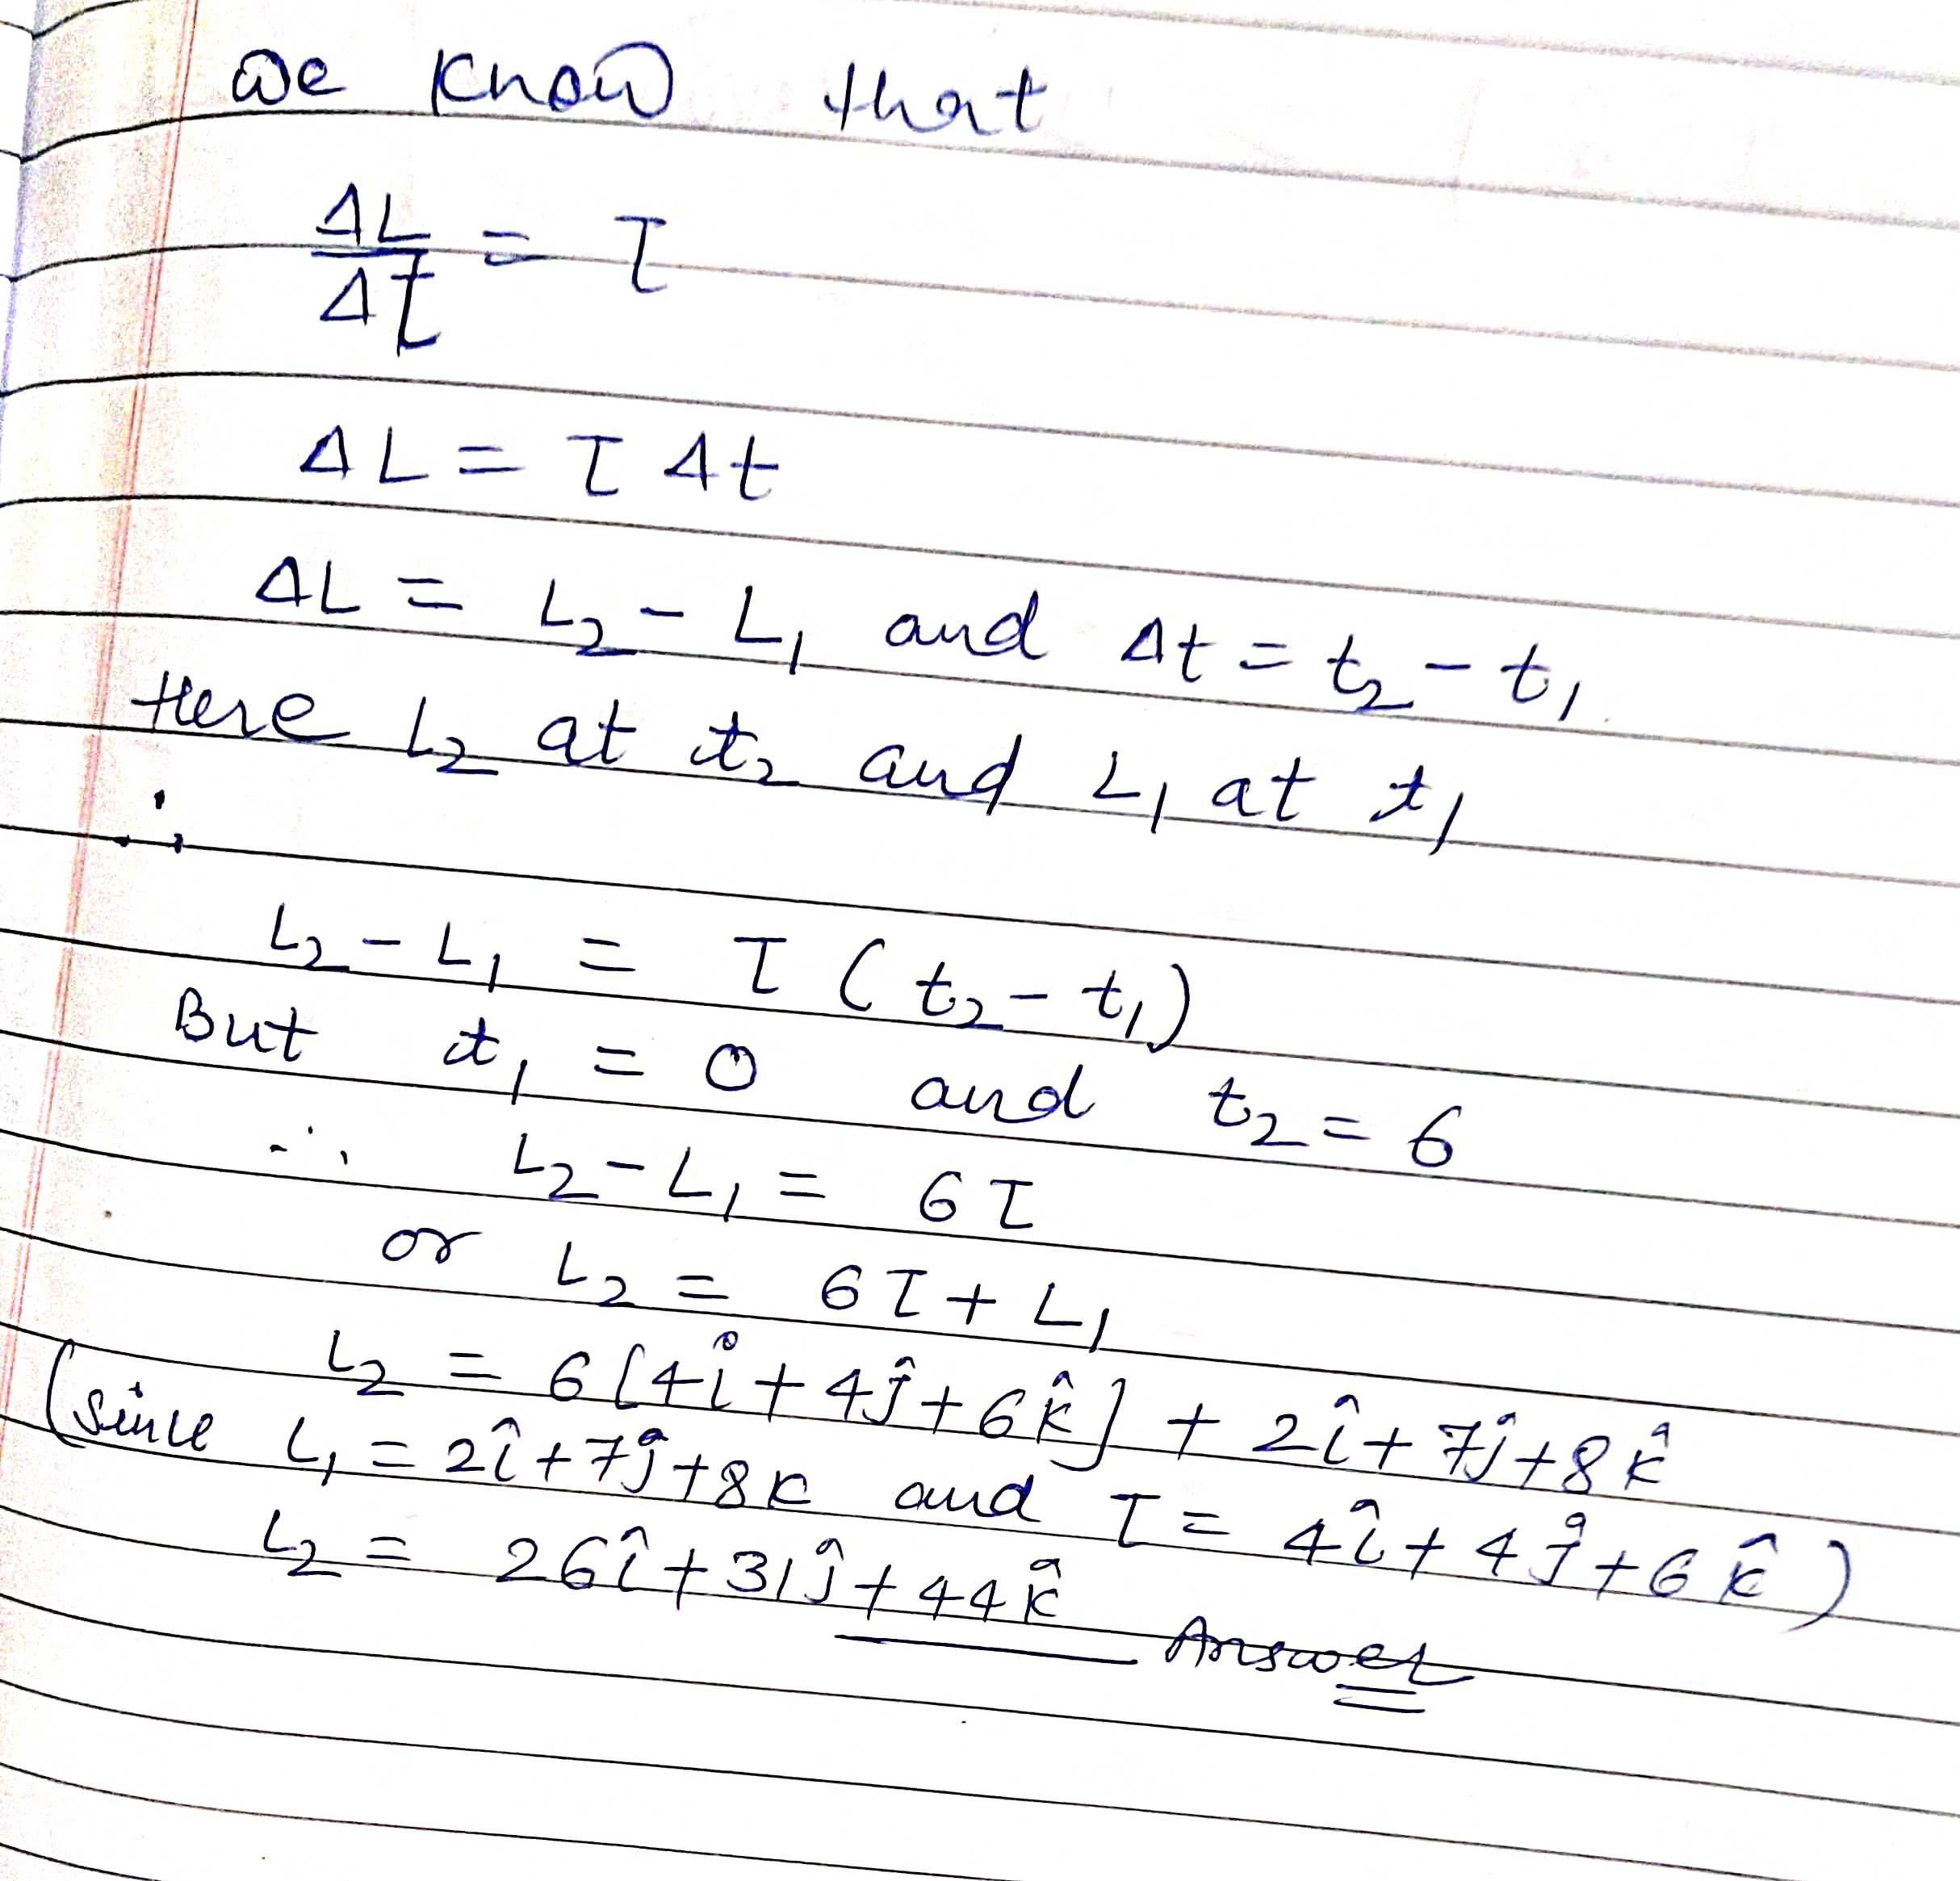 We know that
ΔL/Δt = τ
ΔL = τ Δt
ΔL = L₂ - L₁ and Δt = t₂ - t₁
Here L₂ at t₂ and L₁ at t₁
∴
L₂ - L₁ = τ (t₂ - t₁)
But t₁ = 0 and t₂ = 6
∴ L₂ - L₁ = 6τ
or L₂ = 6τ + L₁
L₂ = 6[4î + 4ĵ + 6k̂] + 2î + 7ĵ + 8k̂
(since L₁ = 2î + 7ĵ + 8k and τ = 4î + 4ĵ + 6k̂)
L₂ = 26î + 31ĵ + 44k̂ Answer